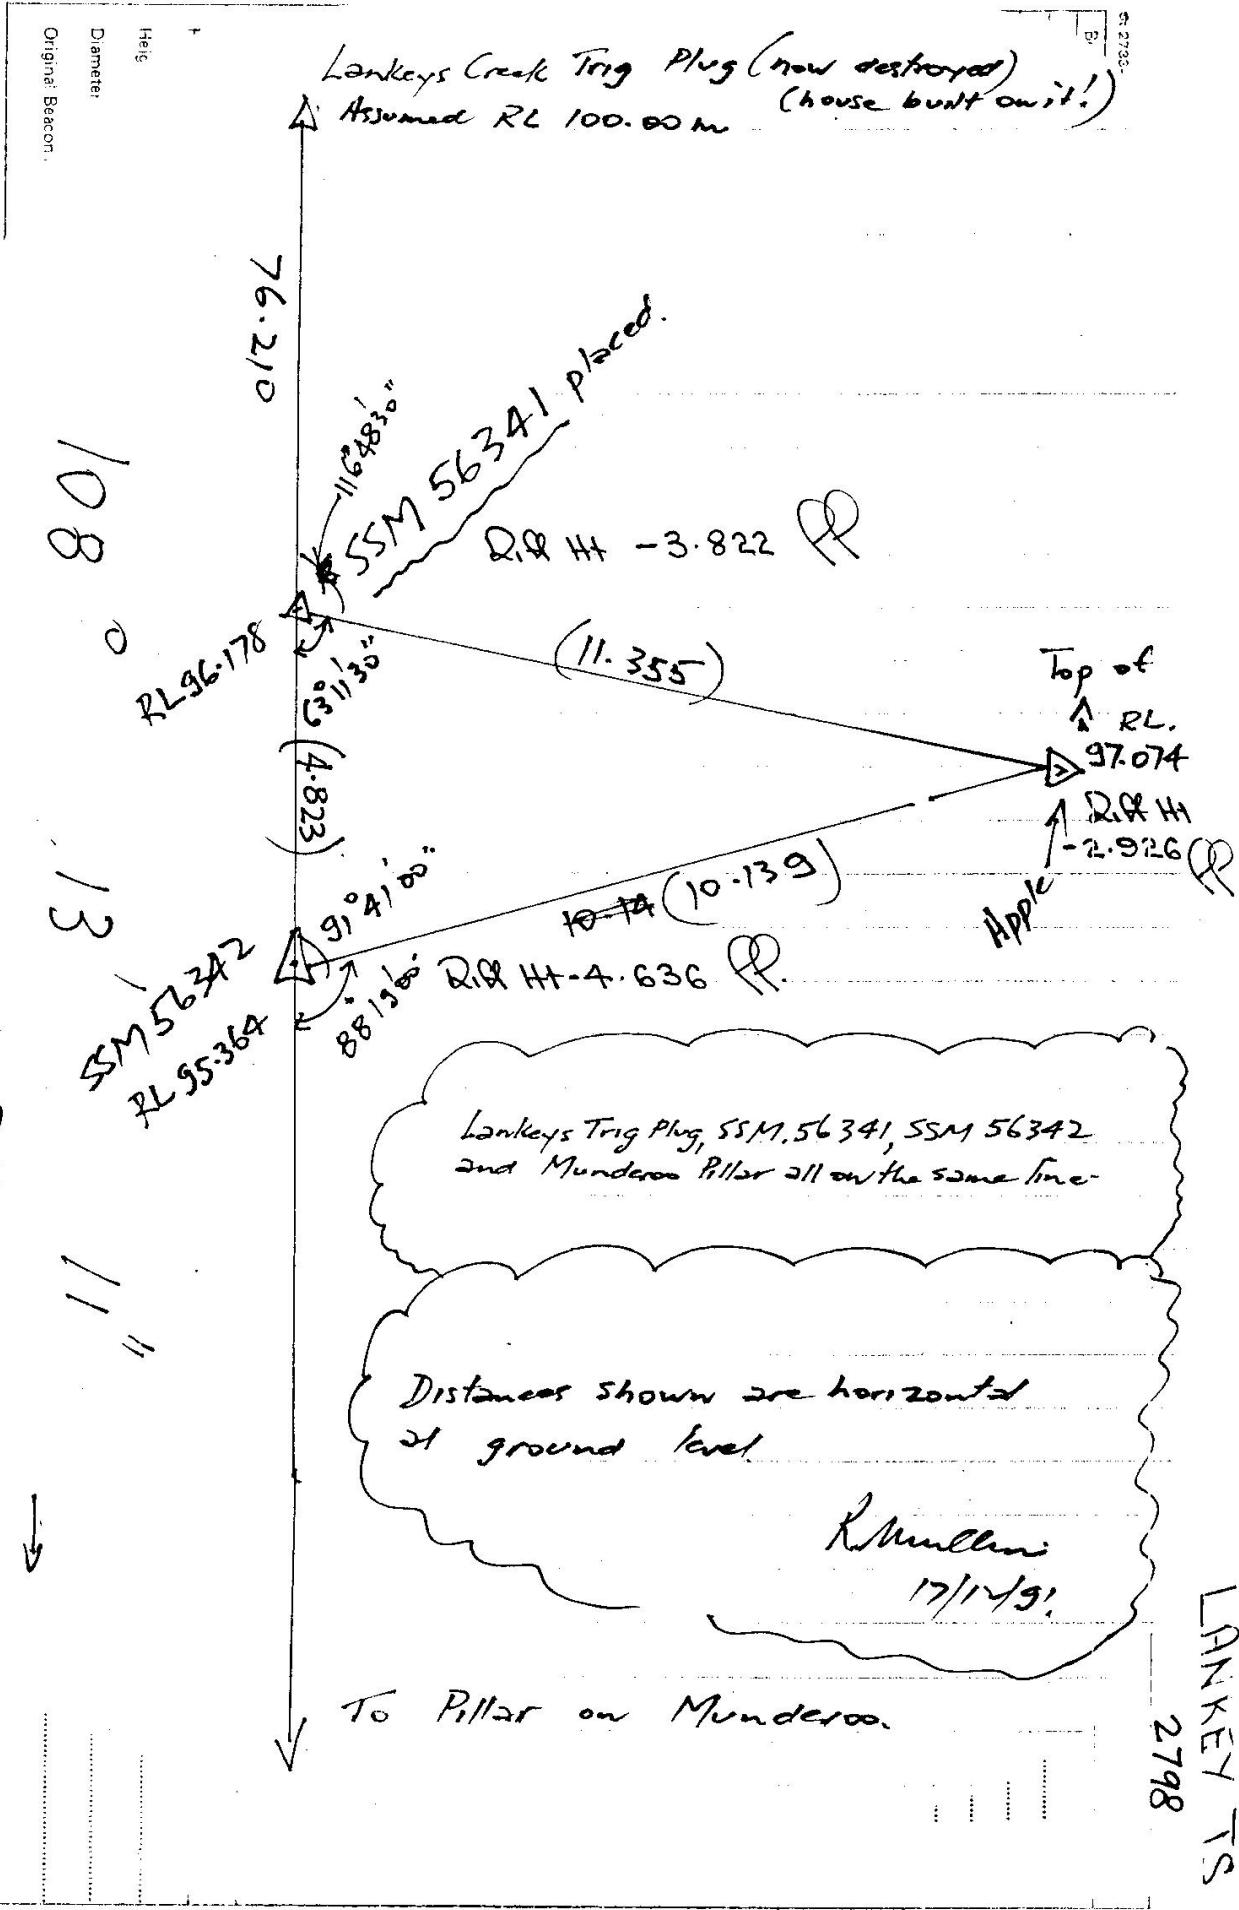 St 2733-
B/
Heig
Diameter
Original Beacon.
Lankeys Creek Trig Plug (now destroyed)
(house built on it!)
Assumed RL 100.00m
76.210
116°48'30"
SSM 56341 placed.
Diff Ht -3.822
RL96.178
63°11'30"
(11.355)
Top of
RL.
97.074
Diff Ht
-2.926
Apple
(4.823)
91°41'00"
10.14 (10.139)
SSM 56342
RL 95.364
88°19'00"
Diff Ht -4.636
108° 13' 11"
Lankeys Trig Plug, SSM.56341, SSM 56342
and Munderoo Pillar all on the same line
Distances shown are horizontal
at ground level.
17/12/91.
To Pillar on Munderoo.
LANKEY TS
2798